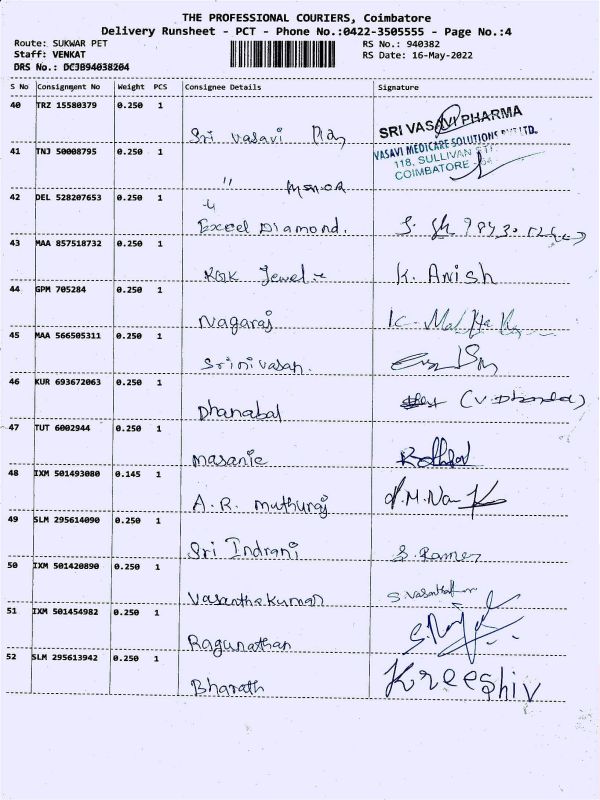 THE PROFESSIONAL COURIERS, Coimbatore
Delivery Runsheet - PCT - Phone No.:0422-3505555 - Page No.:4
Route: SUKWAR PET RS No.: 940382
Staff: VENKAT RS Date: 16-May-2022
DRS No.: DCJB94038204
S No Consignment No Weight PCS Consignee Details Signature
40 TRZ 15580379 0.250 1
Sri vasavi SRI VASAVI PHARMA
41 TNJ 50008795 0.250 1 VASAVI MEDICARE SOLUTIONS
118, SULLIVAN
COIMBATORE
"
42 DEL 528207653 0.250 1
Excel Diamond.
43 MAA 857518732 0.250 1
KGK Jewel K. Anish
44 GPM 705284 0.250 1
Nagaraj
45 MAA 566505311 0.250 1
Srinivasan.
46 KUR 693672063 0.250 1
Dhanabal
47 TUT 6002944 0.250 1
masanic
48 IXM 501493080 0.145 1
A.R. muthuraj
49 SLM 295614090 0.250 1
Sri Indrani S. Ramer
50 IXM 501420890 0.250 1
Vasanthakumar
51 IXM 501454982 0.250 1
Ragunathan
52 SLM 295613942 0.250 1
Bharath Kreeshiv